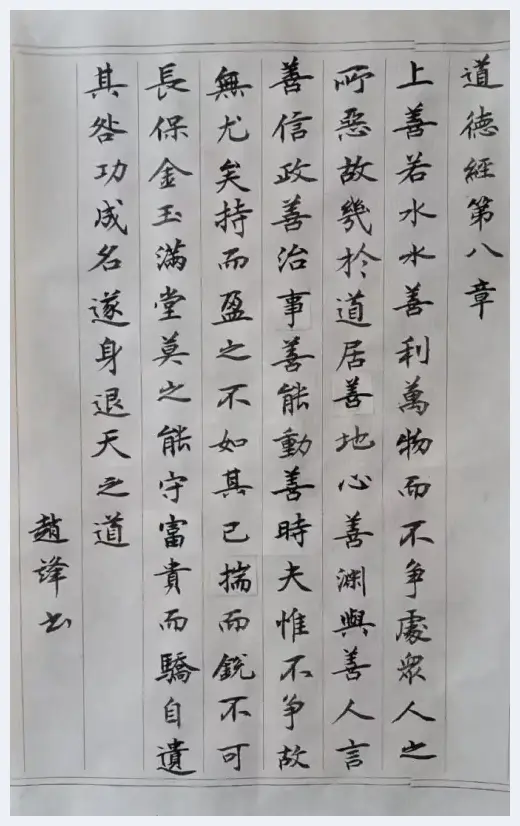 道德經第八章
上善若水水善利萬物而不争處衆人之
所惡故幾於道居善地心善淵與善人言
善信政善治事善能動善時夫惟不争故
無尤矣持而盈之不如其已揣而銳不可
長保金玉滿堂莫之能守富貴而驕自遺
其咎功成名遂身退天之道
趙鋒书